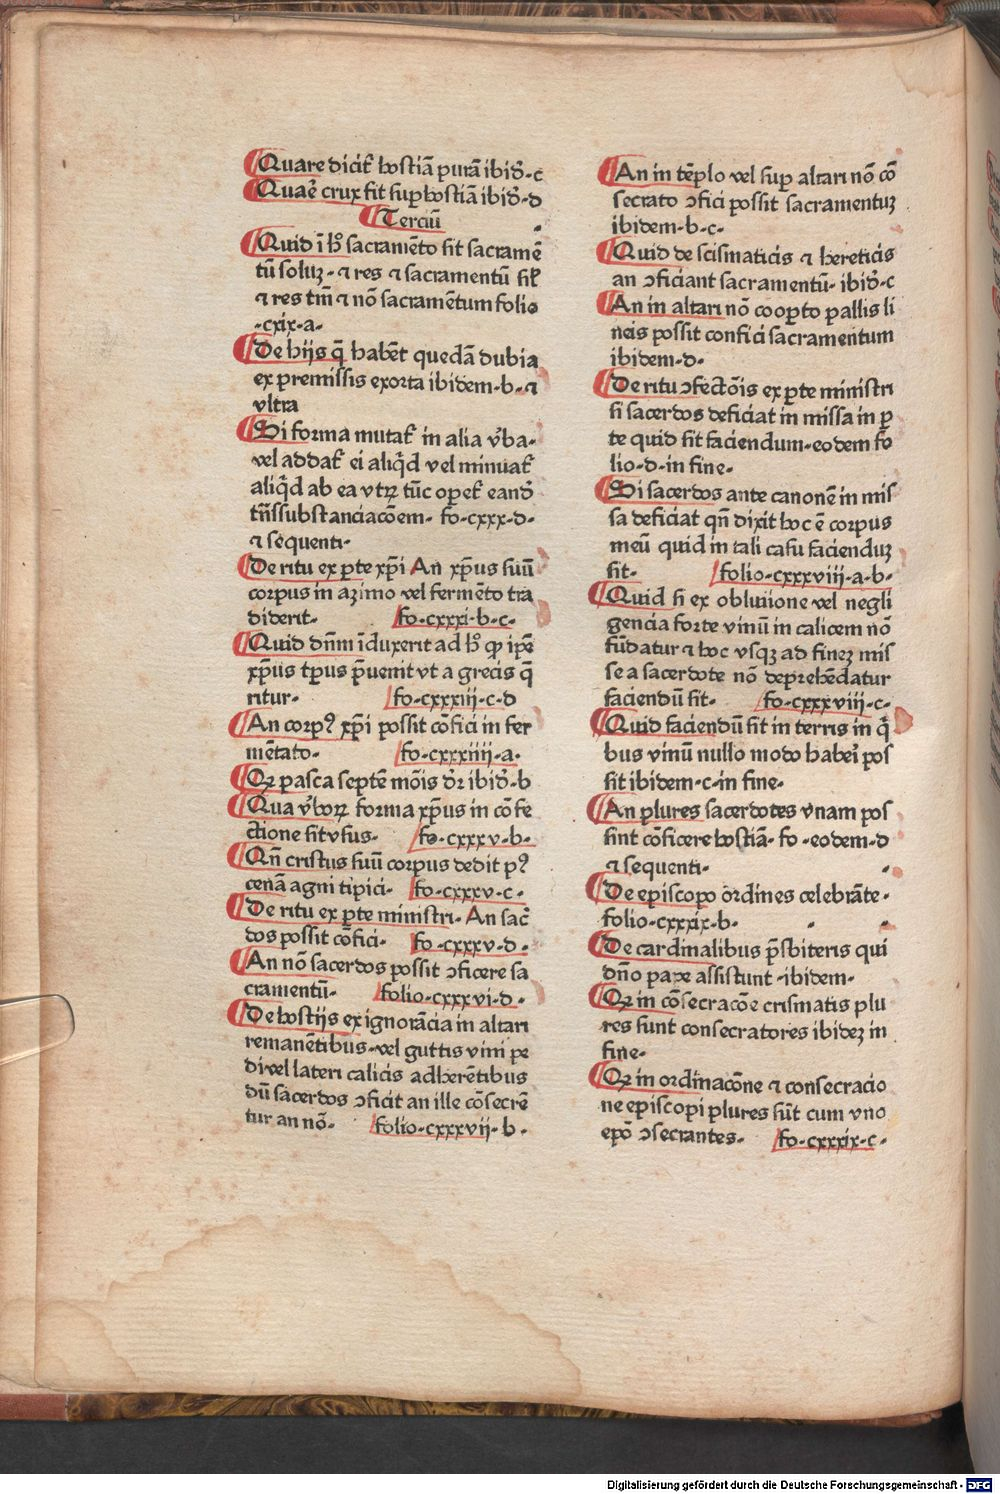 Quare dicit᷑ hostiã purã ibid̃·c
Quãe crux fit sup hostiã ibid̃·d
Terciũ
Quid ĩ hᵒ sacramẽto sit sacramẽ
tũ soluꝫ· ⁊ res ⁊ sacramentũ sil̕
⁊ res tm̃ ⁊ nõ sacramẽtum folio
·cxix·a·
De hijs q̃ habẽt quedã dubia
ex premissis exorta ibidem·b·⁊
vltra
Si forma mutat᷑ in alia v̓ba·
vel addat᷑ ei aliq̃d vel minuat᷑
aliq̃d ab ea vtꝝ tũc oꝑet᷑ eand̃
tñssubstanciacõem· fo·cxxx·d·
⁊ sequenti·
De ritu ex ꝑte xp̃i An xp̃us suũ
corpus in azimo vel fermẽto tra
diderit· fo·cxxxi·b·c·
Quid dñm ĩduxerit ad hᵒ ꝙ ip̃e
xp̃us tp̃us p̃uenit vt a grecis q̃
ritur· fo·cxxxiii·c·d
An corpꝰ xp̃i possit cõfici in fer
mẽtato· fo·cxxxiiii·a·
Qꝝ pasca septẽ mõis dr̃ ibid̃·b
Qua v̓boꝝ forma xp̃us in cõfe
ctione sit vsus· fo·cxxxv·b·
Qñ cristus suũ corpus dedit pꝰ
cenã agni tipici· fo·cxxxv·c·
De ritu ex ꝑte ministri· An sac̃
dos possit cõfici· fo·cxxxv·d·
An nõ sacerdos possit ↄficere sa
cramentũ· folio·cxxxvi·d·
De hostijs ex ignorãcia in altari
remanẽtibus·vel guttis vini pe
di vel lateri calicis adherẽtibus
dũ sacerdos ↄficit an ille cõsecrẽ
tur an nõ· folio·cxxxvij·b·
An in tẽplo vel sup altari nõ cõ
secrato ↄfici possit sacramentuꝫ
ibidem·b·c·
Quid de scismaticis ⁊ hereticis
an ↄficiant sacramentũ· ibid̃·c
An in altari nõ cooꝑto pallis li
neis possit confici sacramentum
ibidem·d·
De ritu ↄfectõis ex ꝑte ministri
si sacerdos deficiat in missa in ꝑ
te quid sit faciendum·eodem fo
lio·d·in fine·
Si sacerdos ante canonẽ in mis
sa deficiat qñ dixit hoc ẽ corpus
meũ quid in tali casu facienduꝫ
sit· folio·cxxxviii·a·b·
Quid si ex obluiione vel negli
gencia forte vinũ in calicem nõ
fũdatur ⁊ hoc vsqꝫ ad fineꝫ mis
se a sacerdote nõ deprehẽdatur
faciendũ sit· fo·cxxxviii·c·
Quid faciendũ sit in terris in q̃
bus vinũ nullo modo haberĩ pos
sit ibidem·c·in fine·
An plures sacerdotes vnam pos
sint cõficere hostiã· fo·eodem·d
⁊ sequenti·
De episcopo ordines celebrãte·
folio·cxxxix·b·
De cardinalibus p̃sbiteris qui
dño pape assistunt·ibidem·
Qꝝ in cõsecracõe crismatis plu
res sunt consecratores ibideꝫ in
fine·
Qꝝ in ordinacõne ⁊ consecracio
ne episcopi plures sũt cum vno
epõ ↄsecrantes· fo·cxxxix·c·
Digitalisierung gefördert durch die Deutsche Forschungsgemeinschaft - DFG